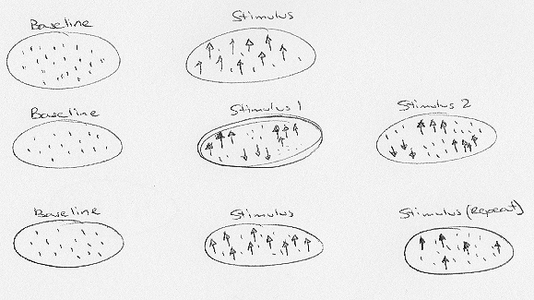 Baseline Stimulus
Baseline Stimulus 1 Stimulus 2
Baseline Stimulus Stimulus (Repeat)